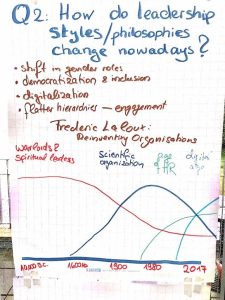 Q2: How do leadership
styles/philosophies
change nowadays?
• shift in gender roles
• democratization & inclusion
• digitalization
• flatter hierarchies — engagement
Frederic Laloux:
Reinventing Organisations
Warlords &
Spiritual leaders
Scientific
organization
age
of
HR
digital
age
10,000 B.C.
1600s
1900
1980
2017